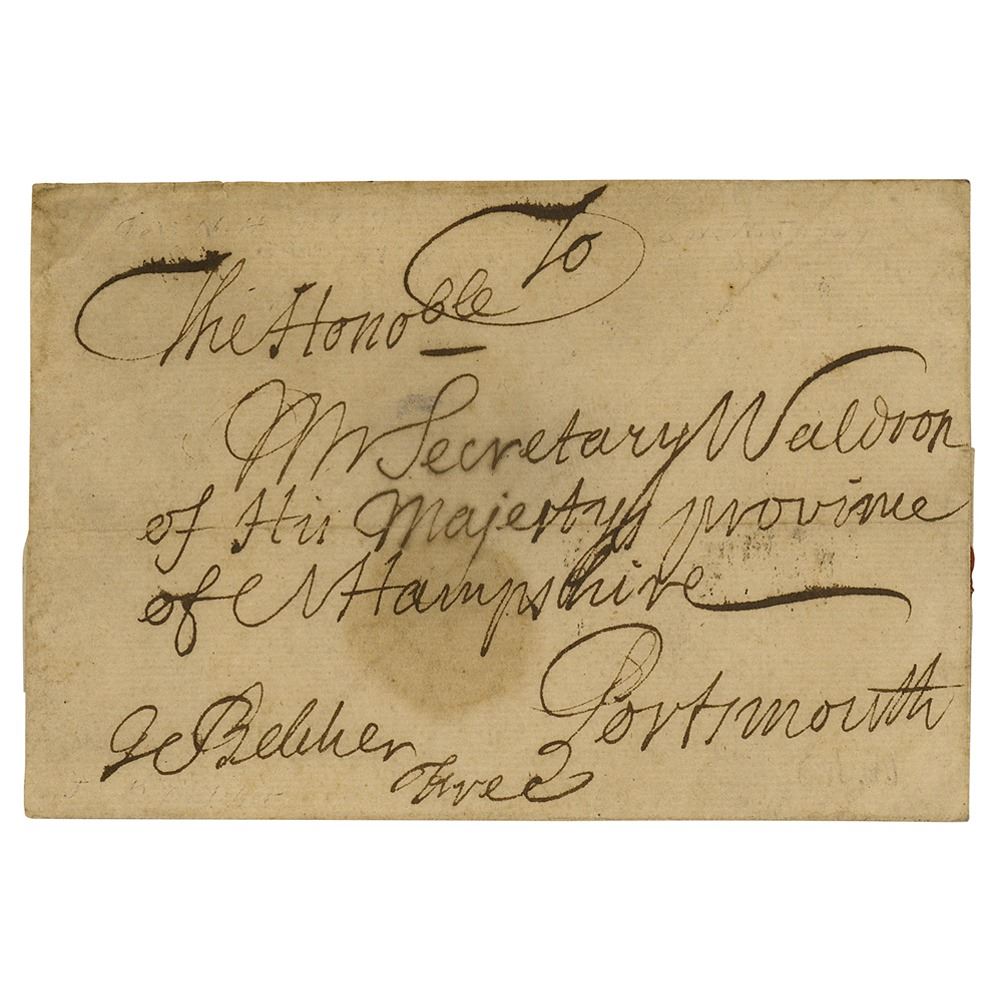 To
The Honoble
Mr Secretary Waldron
of His Majestys province
of NHampshire
Portsmouth
J Belcher
Free